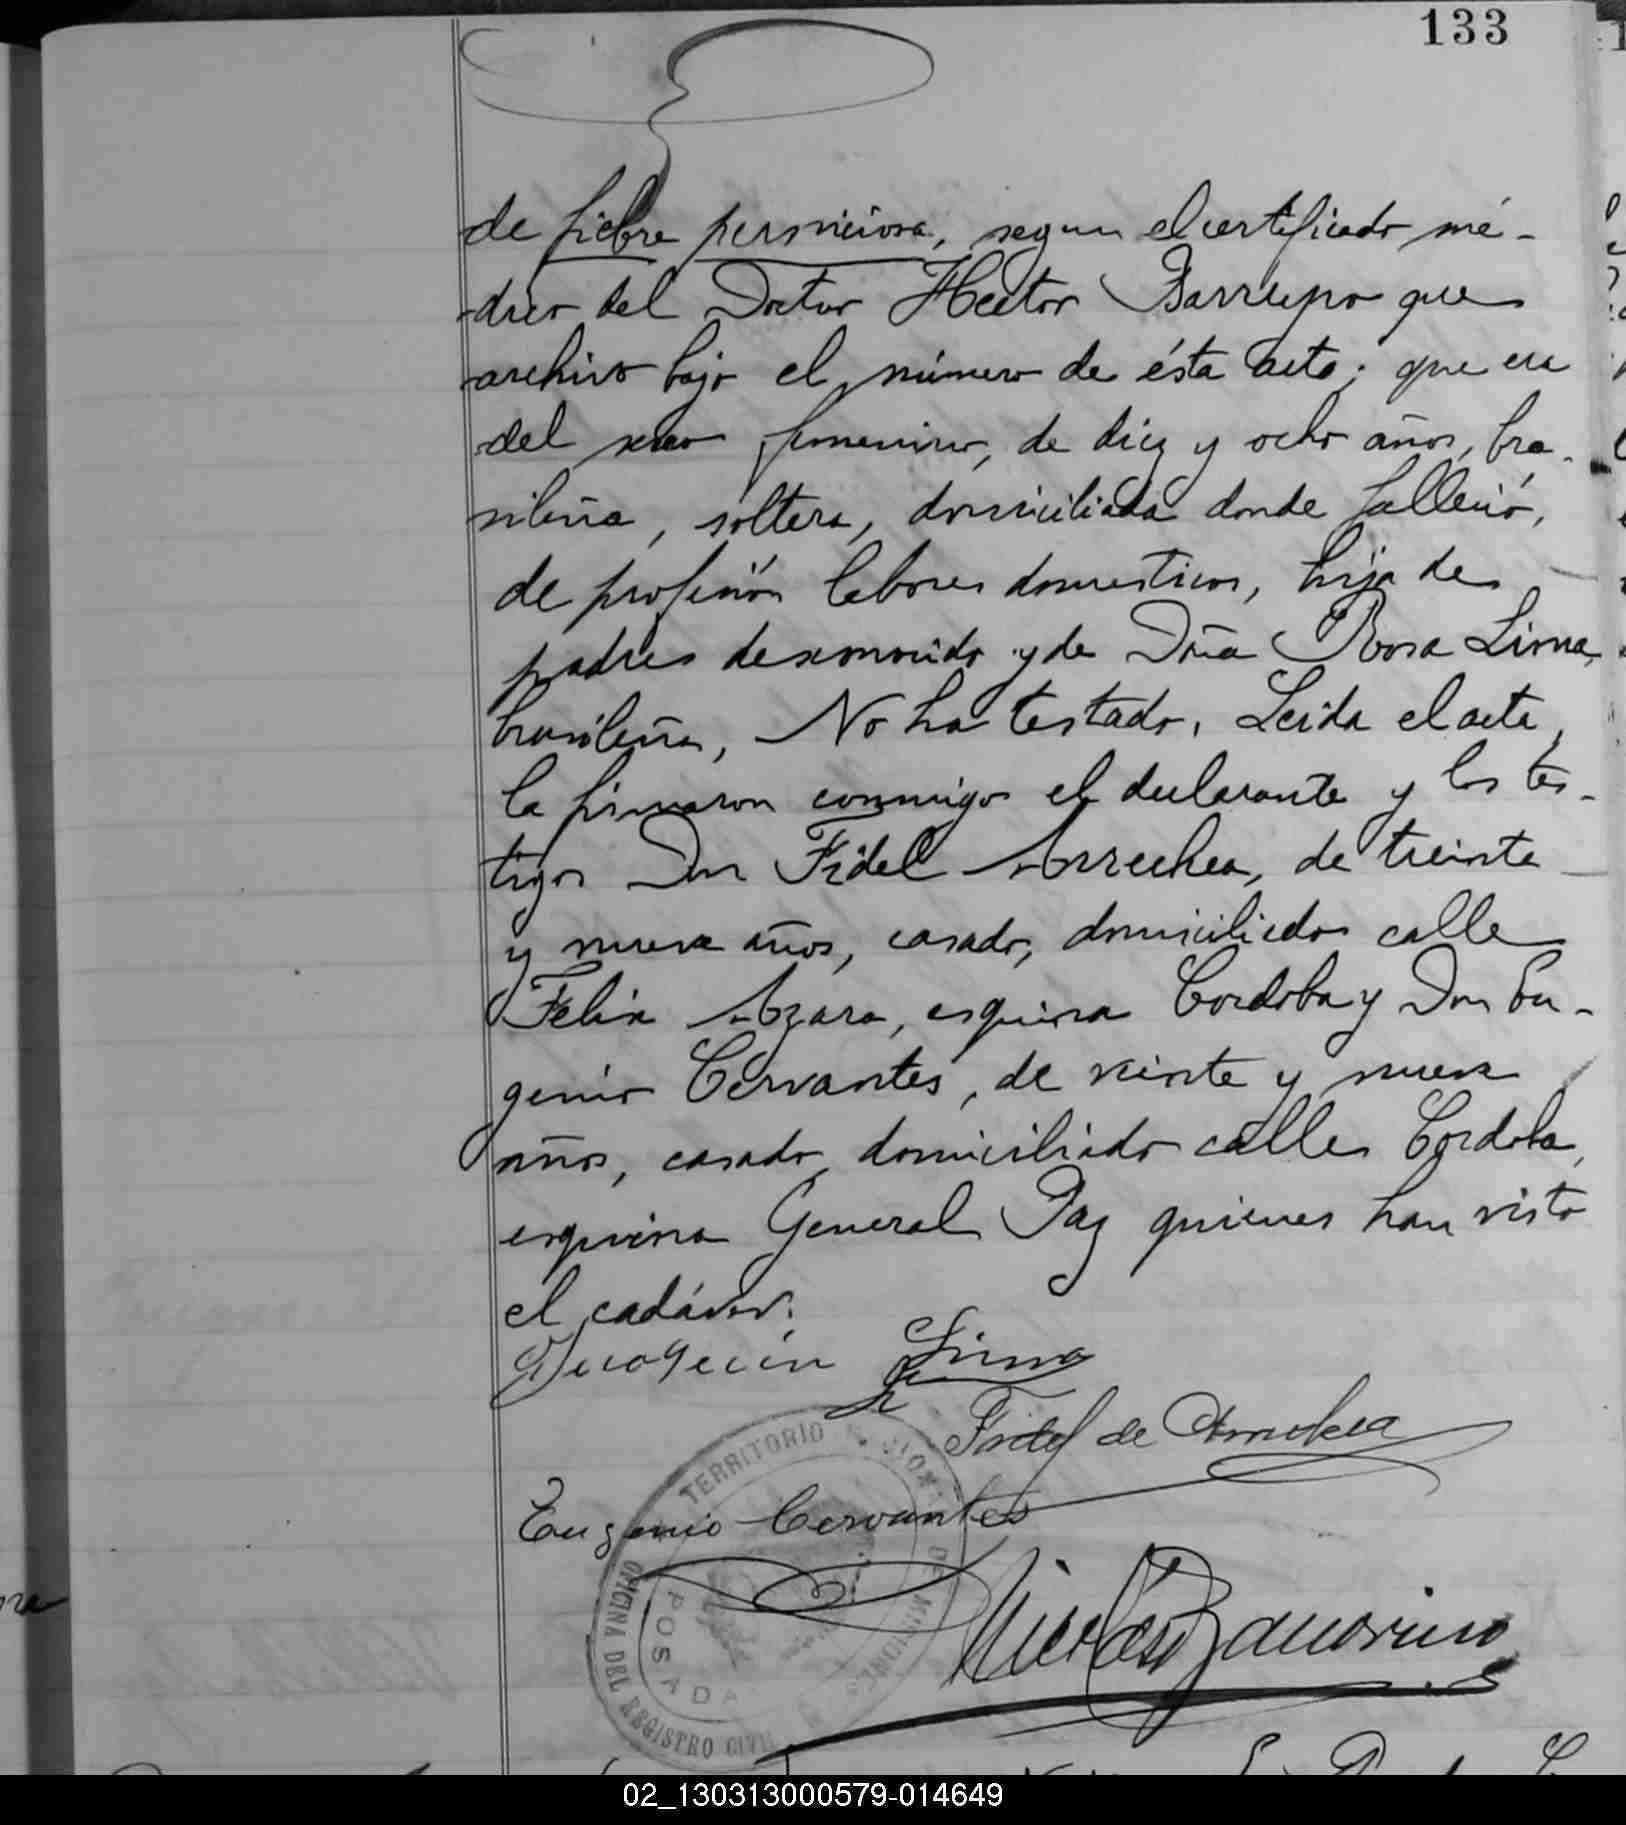 133
de fiebre perniciosa, segun el certificado mé-
dico del Doctor Hector Barreyro que
archivo bajo el número de ésta acta; que era
del sexo femenino, de diez y ocho años, bra-
sileña, soltera, domiciliada donde falleció,
de profesión labores domesticos, hija de
padres desconocido y de Doña Rosa Lima,
brasileña, No ha testado. Leida el acta,
la firmaron conmigo el declarante y los tes-
tigos Don Fidel Arrechea, de treinta
y nueve años, casado, domiciliado calle
Felix Azara, esquina Cordoba y Don Eu-
genio Cervantes, de veinte y nueve
años, casado, domiciliado calle Cordoba,
esquina General Paz quienes han visto
el cadáver.
Lima
Fidel de Arrechea
Eugenio Cervantes
TERRITORIO DE MISIONES
OFICINA DEL REGISTRO CIVIL
POSADAS
02_130313000579-014649